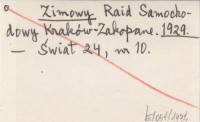 Zimowy Raid Samocho-
dowy Kraków-Zakopane. 1929.
— Świat 24, nr 10.